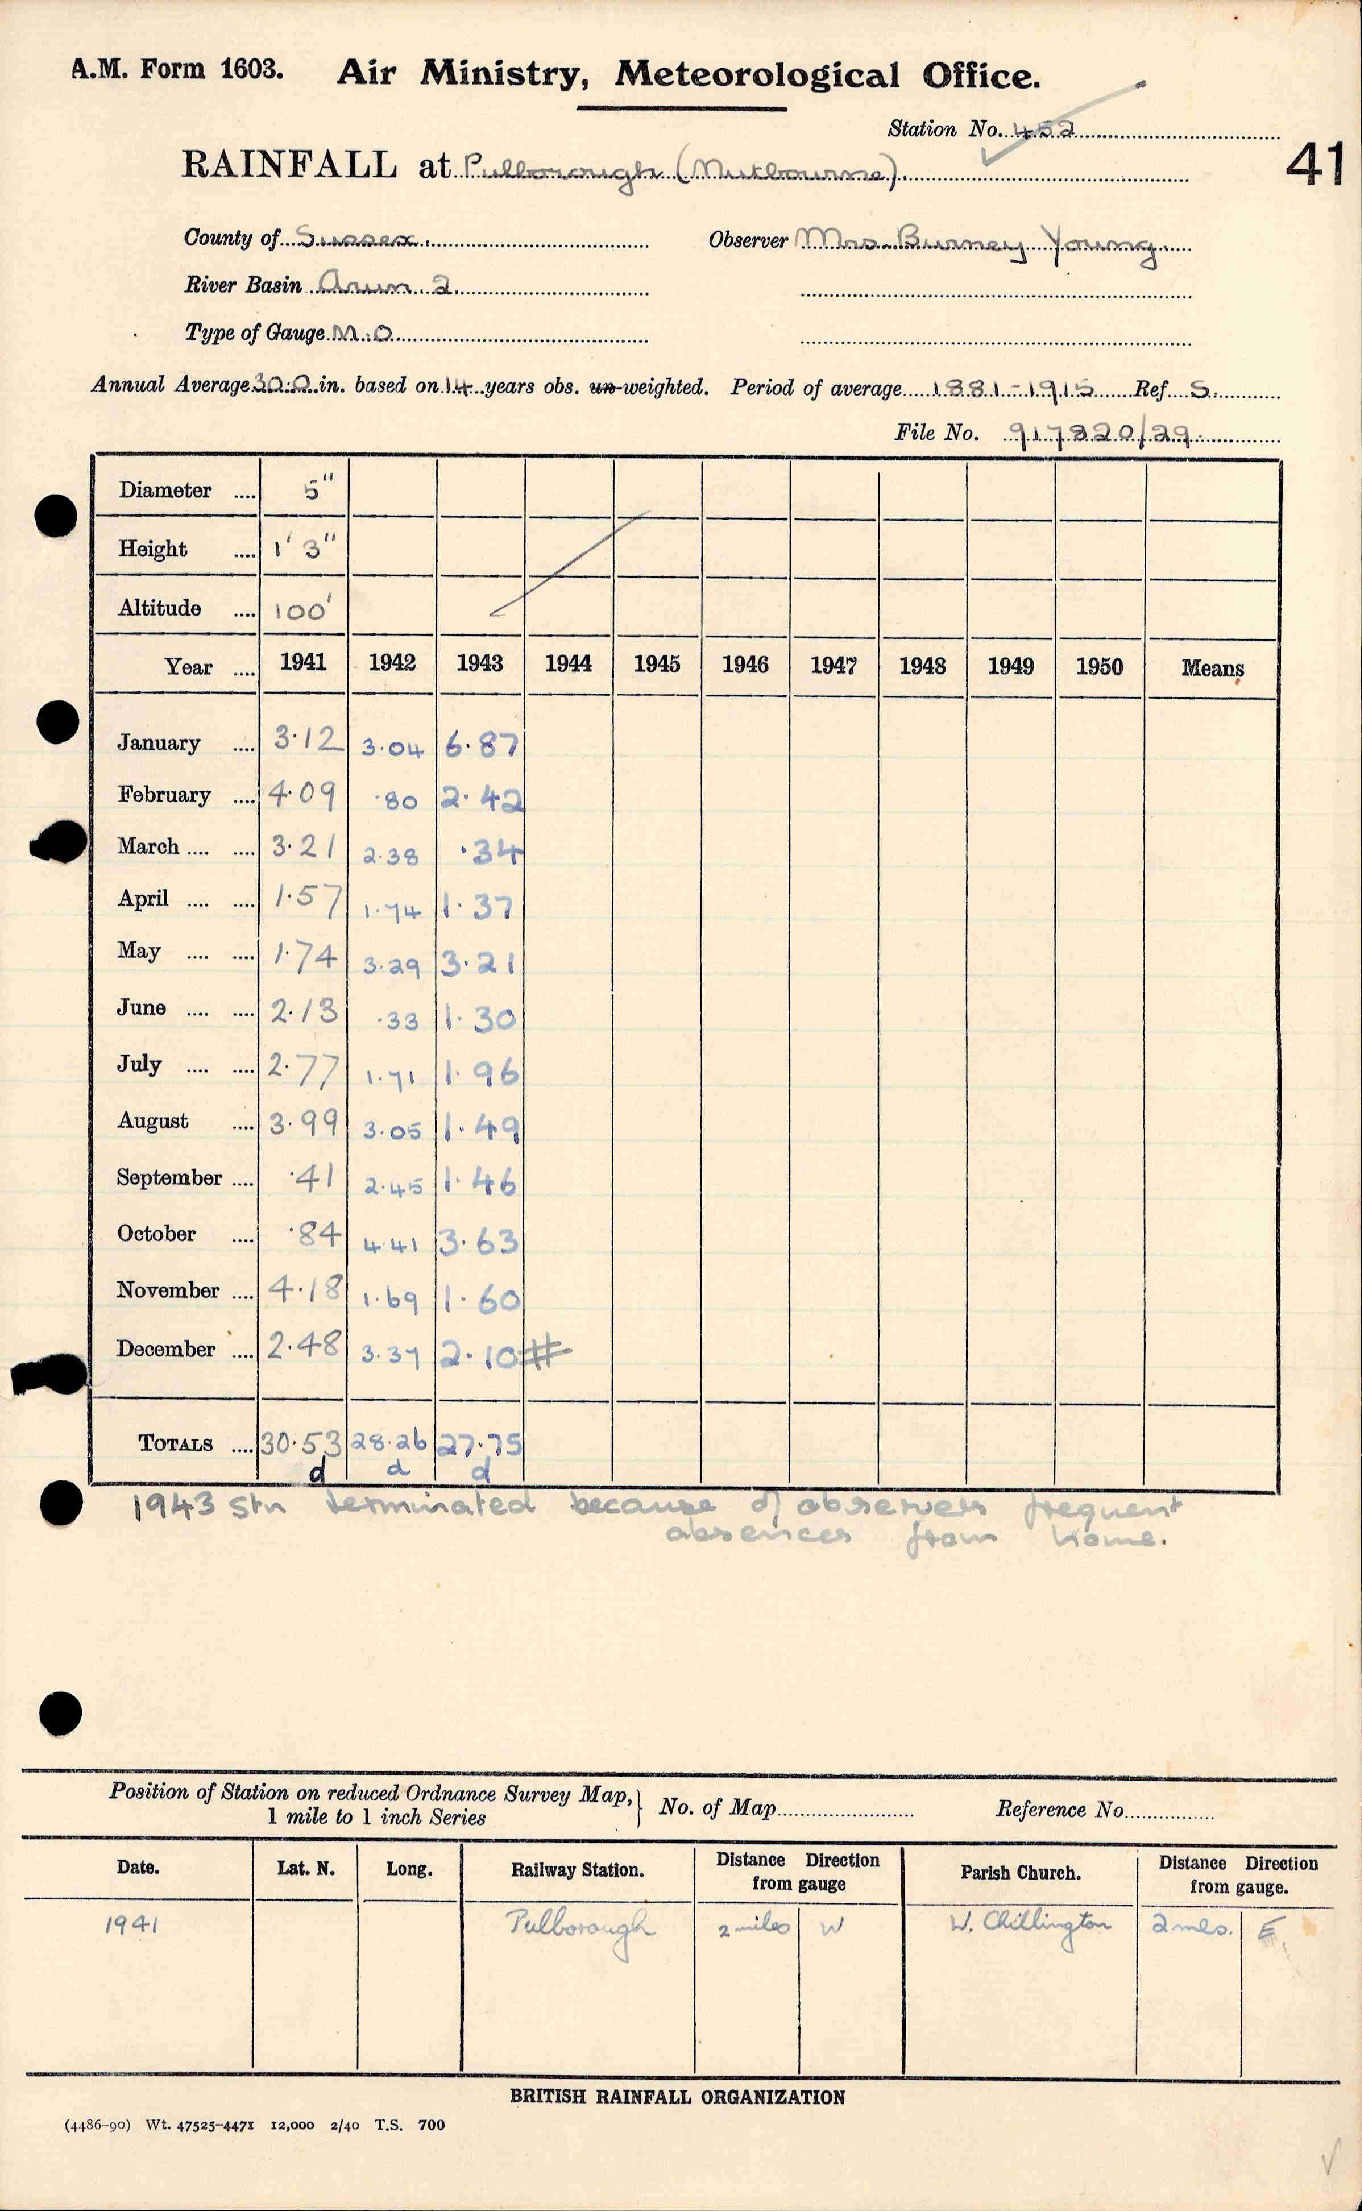 A.M. Form 1603. Air Ministry, Meteorological Office.
Station No. 452
RAINFALL at Pulborough (Nutbourne)
41
County of Sussex. Observer Mrs. Burney Young
River Basin Arun 2
Type of Gauge M.O
Annual Average 30.0 in. based on 14 years obs. un-weighted. Period of average 1881-1915 Ref S.
File No. 917820/29
Diameter .... 5"
Height .... 1' 3"
Altitude .... 100'
Year .... 1941 1942 1943 1944 1945 1946 1947 1948 1949 1950 Means
January .... 3.12 3.04 6.87
February .... 4.09 .80 2.42
March .... .... 3.21 2.38 .34
April .... .... 1.57 1.74 1.37
May .... .... 1.74 3.29 3.21
June .... .... 2.13 .33 1.30
July .... .... 2.77 1.71 1.96
August .... 3.99 3.05 1.49
September .... .41 2.45 1.46
October .... .84 4.41 3.63
November .... 4.18 1.69 1.60
December .... 2.48 3.37 2.10 #
TOTALS .... 30.53 28.26 27.75
d d d
1943 stn terminated because of observers frequent
absences from home.
Position of Station on reduced Ordnance Survey Map, } No. of Map Reference No.
1 mile to 1 inch Series
Date. Lat. N. Long. Railway Station. Distance Direction from gauge Parish Church. Distance Direction from gauge.
1941 Pulborough 2 miles W W. Chillington 2 mls. E.
BRITISH RAINFALL ORGANIZATION
(4486-90) Wt. 47525-4471 12,000 2/40 T.S. 700